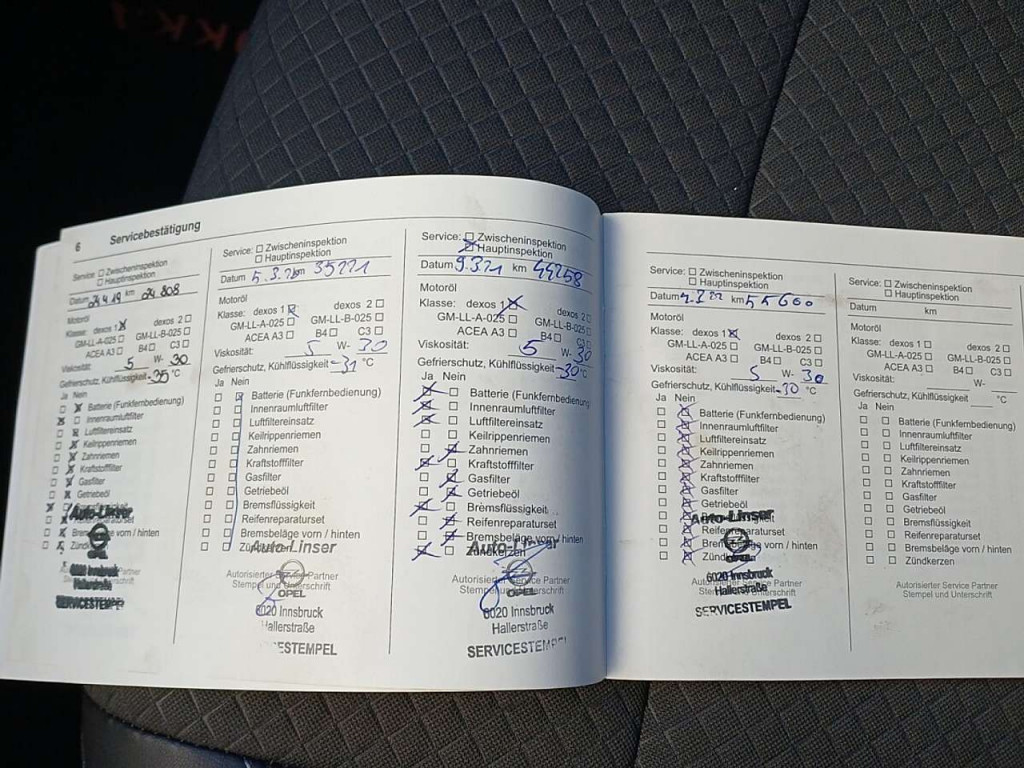 6 Servicebestätigung
Service: ☐ Zwischeninspektion
☐ Hauptinspektion
Datum km 24 808
Motoröl
Klasse: dexos 1 ☒ dexos 2 ☐
GM-LL-A-025 ☐ GM-LL-B-025 ☐
ACEA A3 ☐ B4 ☐ C3 ☐
Viskosität: 5 W- 30
Gefrierschutz, Kühlflüssigkeit -35 °C
Ja Nein
☐ ☒ Batterie (Funkfernbedienung)
☒ ☐ Innenraumluftfilter
☐ ☒ Luftfiltereinsatz
☐ ☒ Keilrippenriemen
☐ ☒ Zahnriemen
☐ ☒ Kraftstofffilter
☐ ☒ Gasfilter
☐ ☒ Getriebeöl
Auto-Linser
Reifenreparaturset
Bremsbeläge vorn / hinten
Zündkerzen
6020 Innsbruck
Hallerstraße
SERVICESTEMPEL
Service: ☐ Zwischeninspektion
☐ Hauptinspektion
Datum 5.3. km 35221
Motoröl
Klasse: dexos 1 ☒ dexos 2 ☐
GM-LL-A-025 ☐ GM-LL-B-025 ☐
ACEA A3 ☐ B4 ☐ C3 ☐
Viskosität: 5 W- 30
Gefrierschutz, Kühlflüssigkeit -31 °C
Ja Nein
☐ ☐ Batterie (Funkfernbedienung)
☐ ☐ Innenraumluftfilter
☐ ☐ Luftfiltereinsatz
☐ ☐ Keilrippenriemen
☐ ☐ Zahnriemen
☐ ☐ Kraftstofffilter
☐ ☐ Gasfilter
☐ ☐ Getriebeöl
☐ ☐ Bremsflüssigkeit
☐ ☐ Reifenreparaturset
☐ ☐ Bremsbeläge vorn / hinten
☐ ☐ Auto-Linser
Autorisierter Service Partner
Stempel und Unterschrift
OPEL
6020 Innsbruck
Hallerstraße
SERVICESTEMPEL
Service: ☐ Zwischeninspektion
☒ Hauptinspektion
Datum 9.3 21 km 44258
Motoröl
Klasse: dexos 1 ☒ dexos 2 ☐
GM-LL-A-025 ☐ GM-LL-B-025 ☐
ACEA A3 ☐ B4 ☐ C3 ☐
Viskosität: 5 W- 30
Gefrierschutz, Kühlflüssigkeit -30 °C
Ja Nein
☒ ☐ Batterie (Funkfernbedienung)
☒ ☐ Innenraumluftfilter
☒ ☐ Luftfiltereinsatz
☐ ☐ Keilrippenriemen
☐ ☒ Zahnriemen
☒ ☐ Kraftstofffilter
☐ ☒ Gasfilter
☐ ☒ Getriebeöl
☒ ☐ Bremsflüssigkeit
☐ ☒ Reifenreparaturset
☐ ☒ Bremsbeläge vorn / hinten
☒ ☐ Zündkerzen
Auto-Linser
Autorisierter Service Partner
Stempel und Unterschrift
OPEL
6020 Innsbruck
Hallerstraße
SERVICESTEMPEL
Service: ☐ Zwischeninspektion
☐ Hauptinspektion
Datum km 55600
Motoröl
Klasse: dexos 1 ☒ dexos 2 ☐
GM-LL-A-025 ☐ GM-LL-B-025 ☐
ACEA A3 ☐ B4 ☐ C3 ☐
Viskosität: 5 W- 30
Gefrierschutz, Kühlflüssigkeit -30 °C
Ja Nein
☐ ☒ Batterie (Funkfernbedienung)
☐ ☒ Innenraumluftfilter
☐ ☒ Luftfiltereinsatz
☐ ☒ Keilrippenriemen
☐ ☒ Zahnriemen
☐ ☒ Kraftstofffilter
☐ ☒ Gasfilter
☐ ☒ Getriebeöl
Auto-Linser
☐ ☒ Reifenreparaturset
☐ ☒ Bremsbeläge vorn / hinten
☐ ☒ Zündkerzen
6020 Innsbruck
Hallerstraße
SERVICESTEMPEL
Service: ☐ Zwischeninspektion
☐ Hauptinspektion
Datum km
Motoröl
Klasse: dexos 1 ☐ dexos 2 ☐
GM-LL-A-025 ☐ GM-LL-B-025 ☐
ACEA A3 ☐ B4 ☐ C3 ☐
Viskosität: W-
Gefrierschutz, Kühlflüssigkeit °C
Ja Nein
☐ ☐ Batterie (Funkfernbedienung)
☐ ☐ Innenraumluftfilter
☐ ☐ Luftfiltereinsatz
☐ ☐ Keilrippenriemen
☐ ☐ Zahnriemen
☐ ☐ Kraftstofffilter
☐ ☐ Gasfilter
☐ ☐ Getriebeöl
☐ ☐ Bremsflüssigkeit
☐ ☐ Reifenreparaturset
☐ ☐ Bremsbeläge vorn / hinten
☐ ☐ Zündkerzen
Autorisierter Service Partner
Stempel und Unterschrift